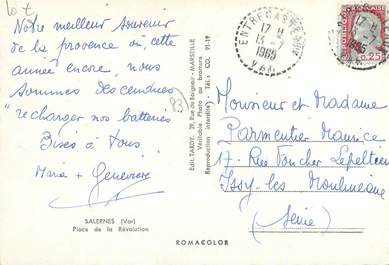 Notre meilleur souvenir
de la provence où cette
année encore, nous
sommes descendues
"recharger nos batteries
Bises à tous
Maria + Geneviève
SALERNES (Var)
Place de la Révolution
Edit. TARDY, 29, Rue du Baignoir - MARSEILLE
Véritable Photo au bromure
Reproduction interdite) Tél. CO. 91-19
83)
ENTRECASTEAUX
17 H
13-7
1965
VAR
REPUBLIQUE FRANÇAISE
0,25
Monsieur et Madame
Parmentier Maurice
17. Rue Foucher Lepelletier
Issy-les Moulineaux
(Seine)
ROMACOLOR